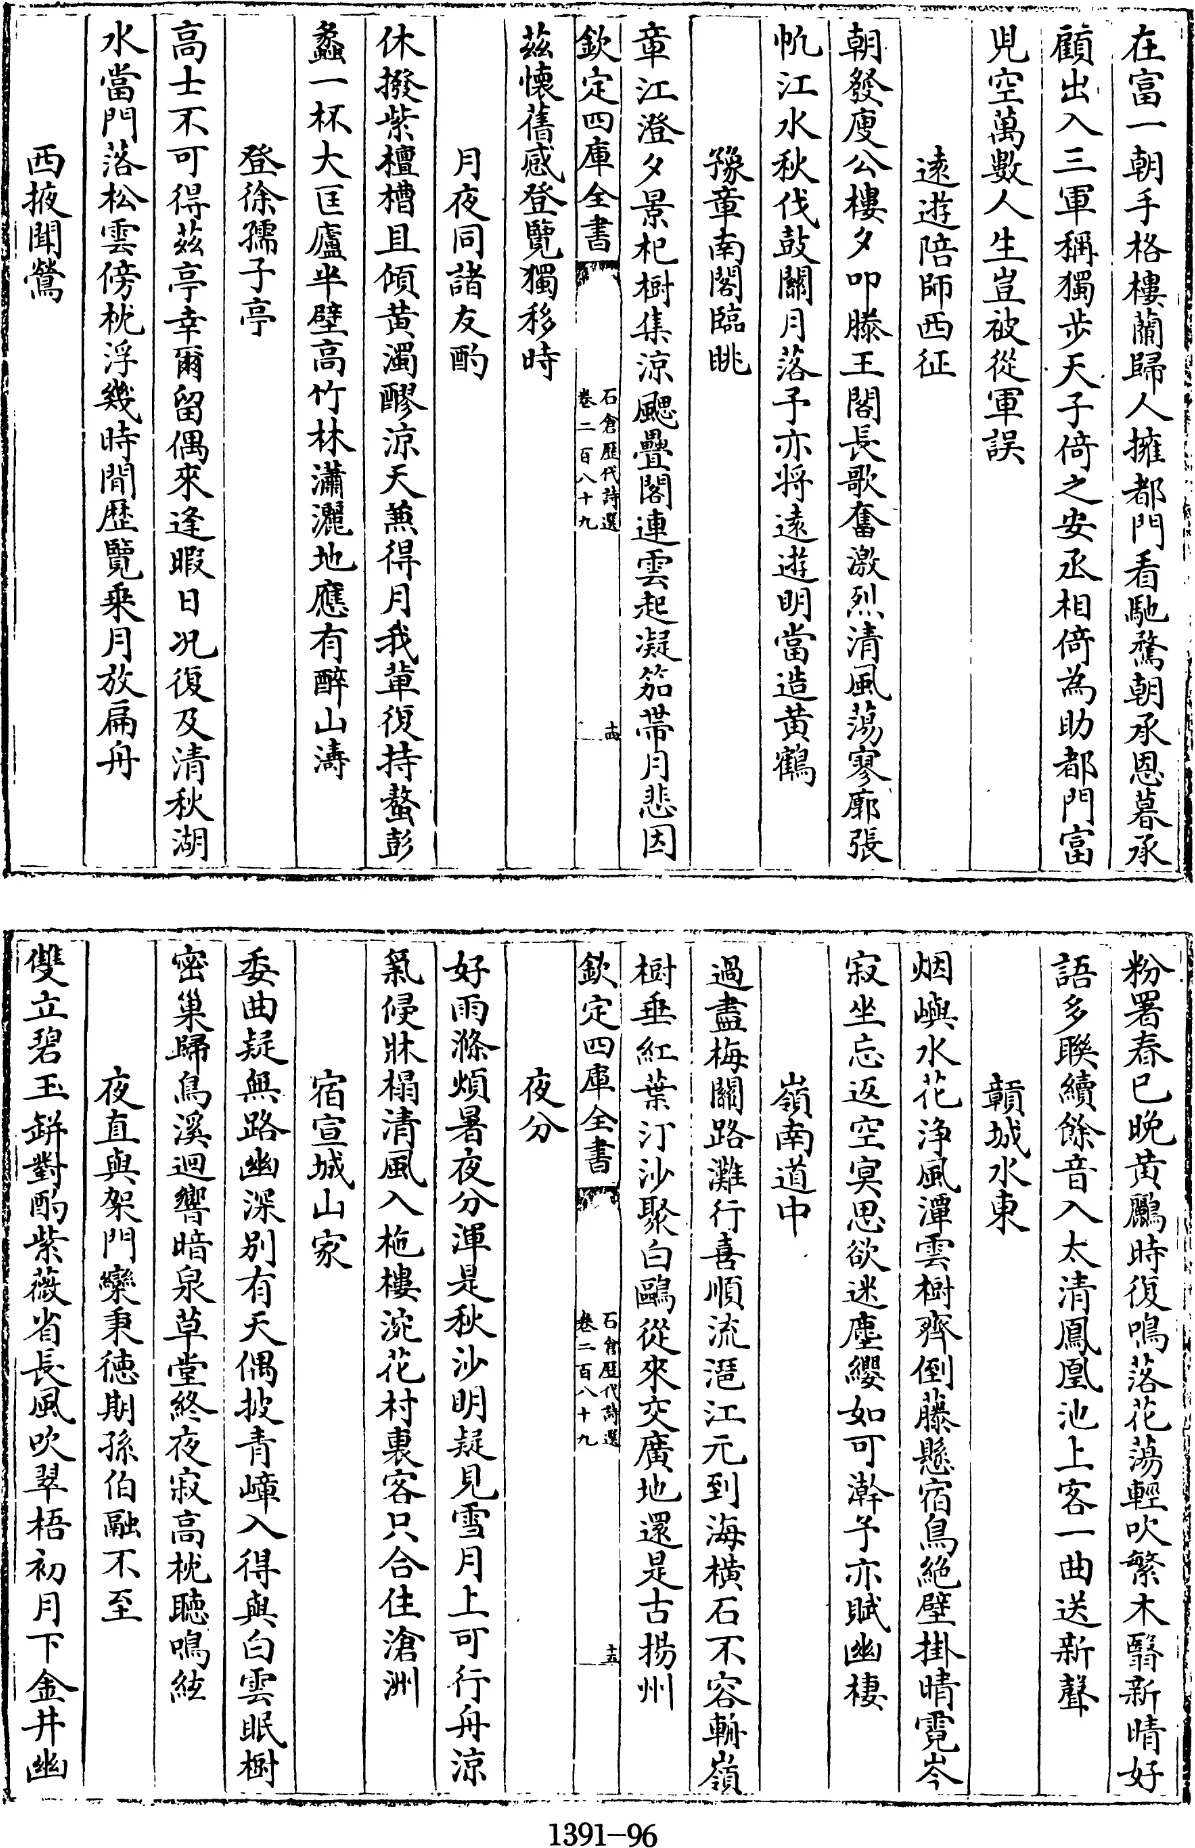 在富一朝手格樓蘭歸人擁都門看馳騖朝承恩暮承
顧出入三軍稱獨步天子倚之安丞相倚為助都門富
兒空萬數人生豈被從軍誤
遠遊陪師西征
朝發庾公樓夕叩滕王閣長歌奮激烈清風蕩寥廓張
帆江水秋伐鼓關月落予亦将遠遊明當造黄鶴
豫章南閣臨眺
章江澄夕景杞樹集涼颸疊閣連雲起凝笳帶月悲因
欽定四庫全書
石倉歷代詩選
卷二百八十九
十四
兹懷舊感登覽獨移時
月夜同諸友酌
休撥紫檀槽且傾黄濁醪凉天兼得月我輩復持螯彭
蠡一杯大匡廬半壁高竹林瀟灑地應有醉山濤
登徐孺子亭
高士不可得兹亭幸爾留偶來逢暇日况復及清秋湖
水當門落松雲傍枕浮幾時閒歴覽乗月放扁舟
西掖聞鶯
粉署春已晚黄鸝時復鳴落花蕩輕吹繁木翳新晴好
語多聨續餘音入太清鳳凰池上客一曲送新聲
贑城水東
烟嶼水花浄風潭雲樹齊倒藤懸宿鳥絶壁掛晴霓岑
寂坐忘返空冥思欲迷塵纓如可澣予亦賦幽棲
嶺南道中
過盡梅關路灘行喜順流湿江元到海横石不容輈嶺
樹垂紅葉汀沙聚白鷗從來交廣地還是古揚州
欽定四庫全書
石倉歷代詩選
卷二百八十九
十五
夜分
好雨滌煩暑夜分渾是秋沙明疑見雪月上可行舟涼
氣侵牀榻清風入柂樓浣花村裏客只合住滄洲
宿宣城山家
委曲疑無路幽深别有天偶披青嶂入得與白雲眠樹
密巢歸鳥溪迴響暗泉草堂終夜寂高枕聽鳴絃
夜直與架門欒秉徳期孫伯融不至
雙立碧玉缾對酌紫薇省長風吹翠梧初月下金井幽
1391-96